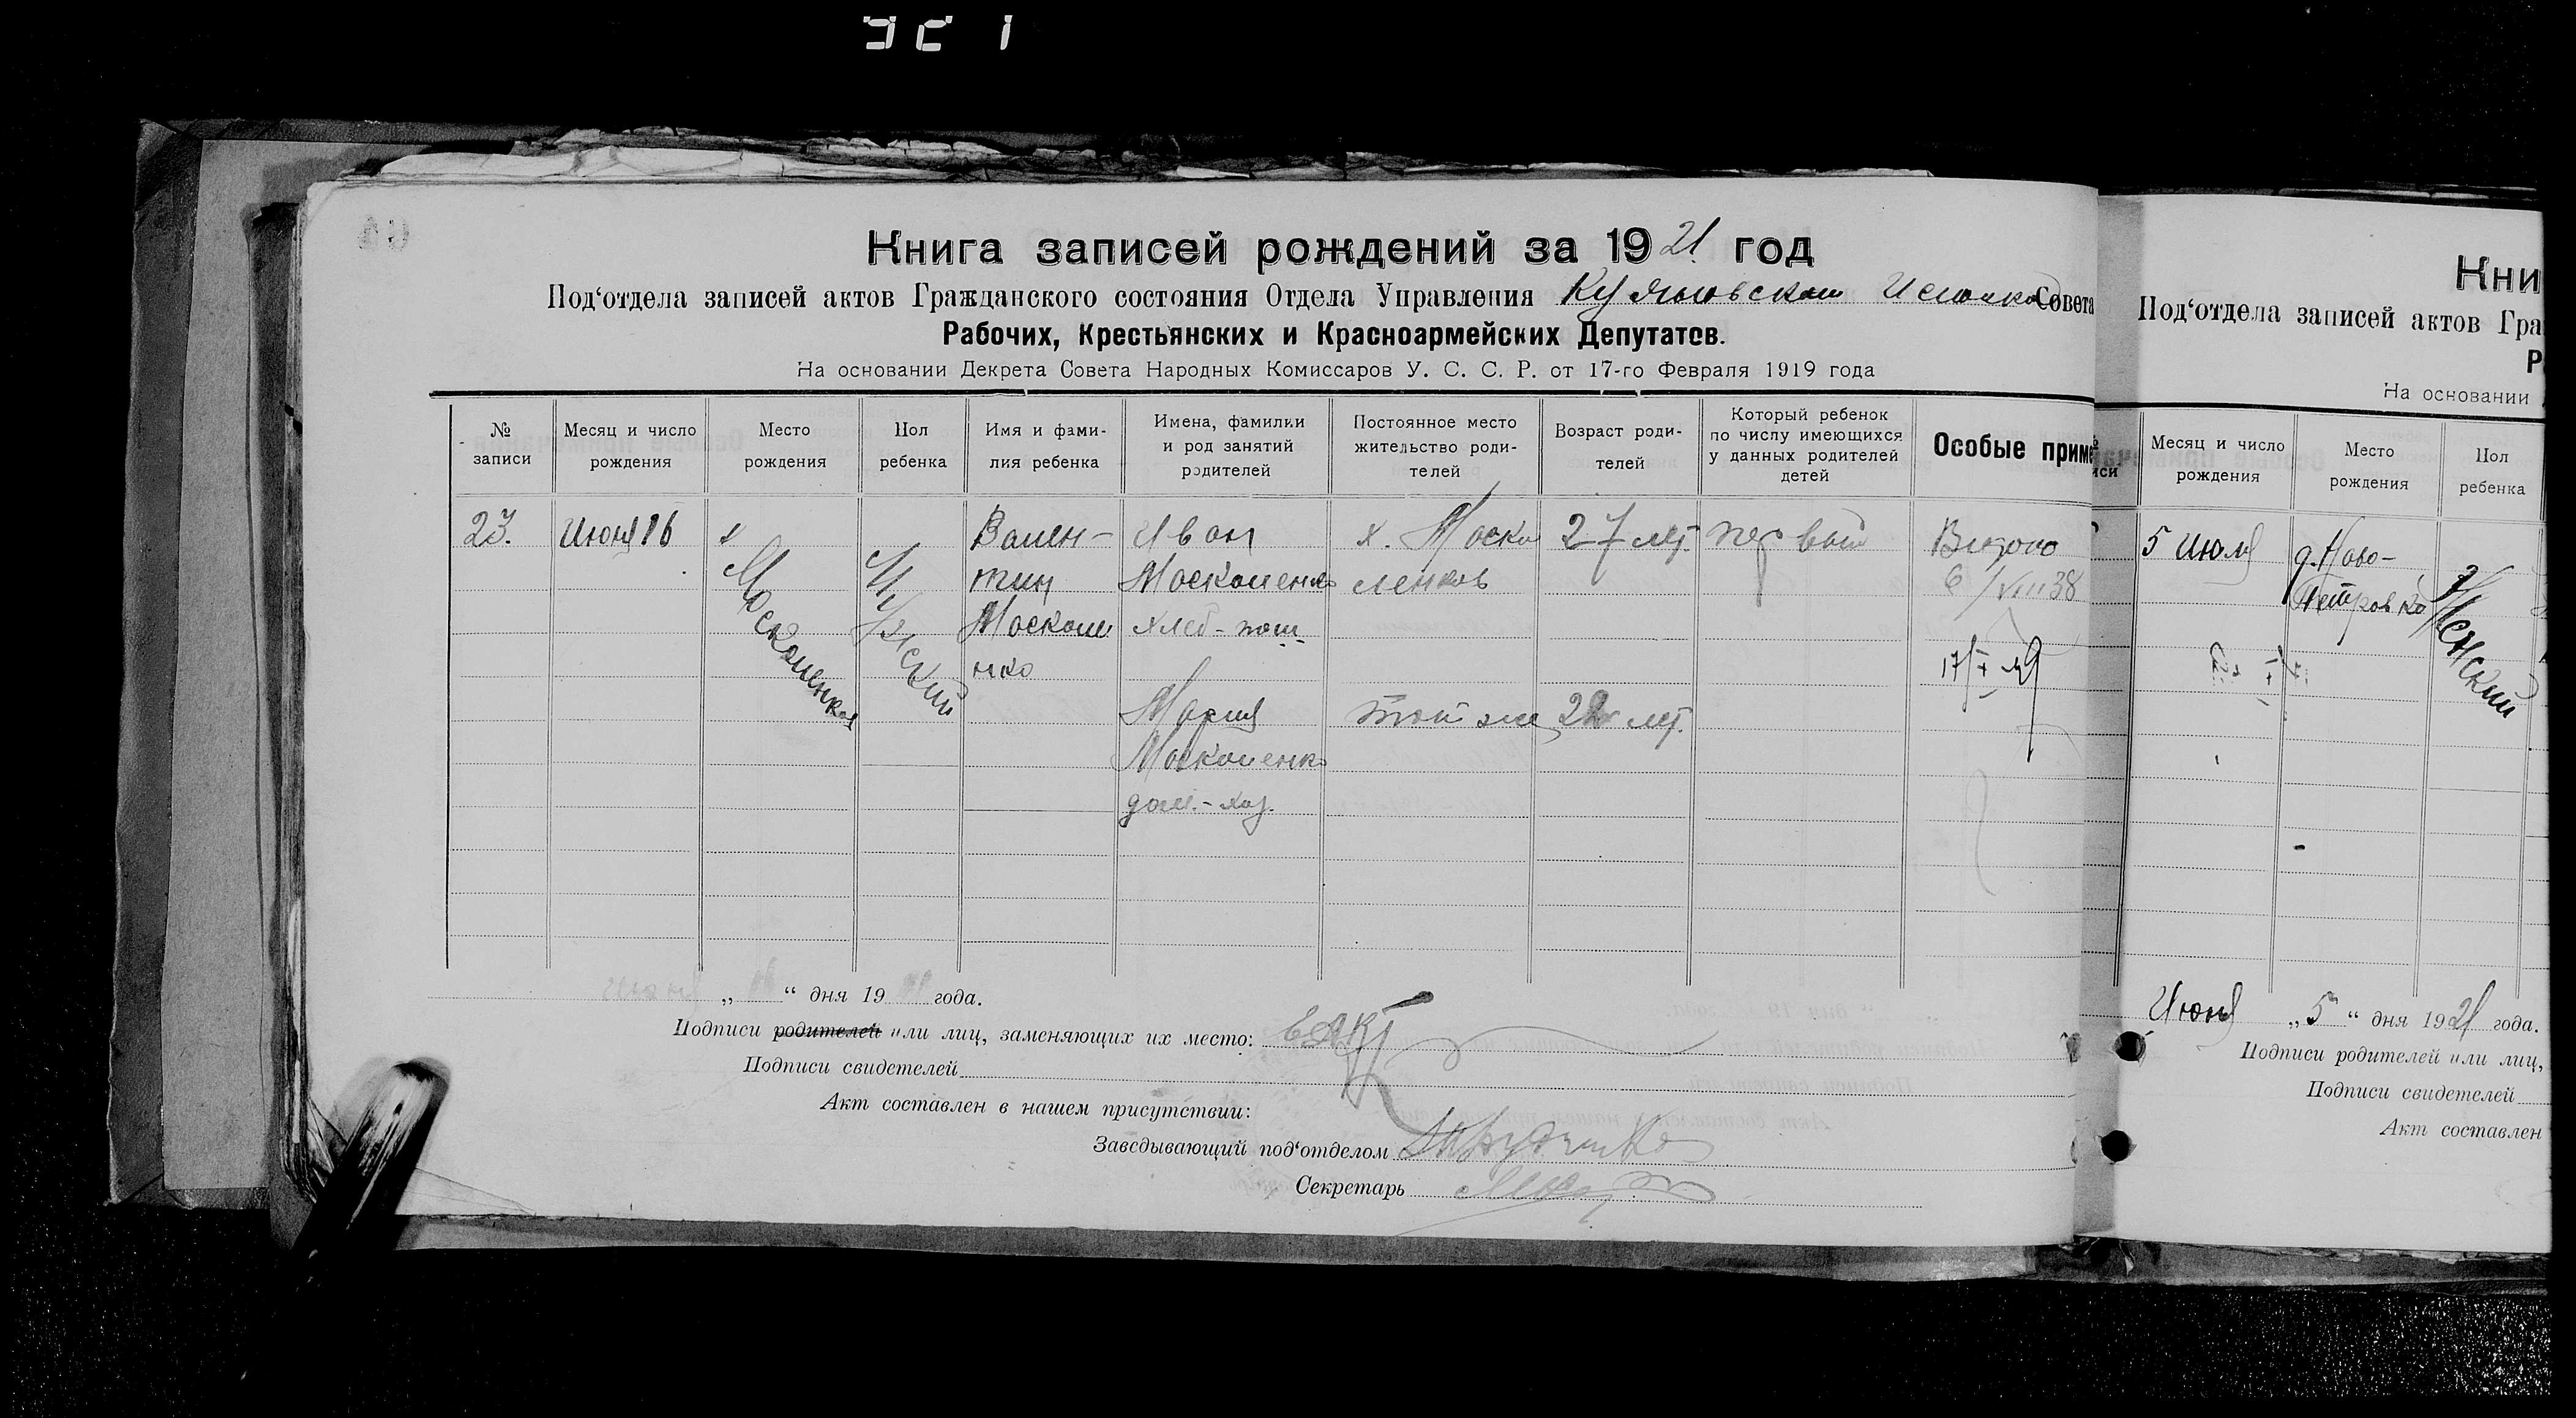 Книга записей рождений за 1921 год
Под‘отдела записей актов Гражданского состояния Отдела Управления Совета
Рабочих, Крестьянских и Красноармейских Депутатов.
На основании Декрета Совета Народных Комиссаров У. С. С. Р. от 17-го Февраля 1919 года
№ записи
Месяц и число рождения
Место рождения
Пол ребенка
Имя и фами-
лия ребенка
Имена, фамилии
и род занятий
родителей
Постоянное место
жительство роди-
телей
Возраст роди-
телей
Который ребенок
по числу имеющихся
у данных родителей
детей
Особые приме
23.
Июня 16
х
Москаленков
Мужской
Вален-
тин
Москале
нко
Иван
Москаленко
хлеб-паш.
Мария
Москаленко
дом.-хоз.
х. Моска
ленков
той же
27 лет.
22 лет.
первый
Видано
6/VIII 38
„ “ дня 19 года.
Подписи родителей или лиц, заменяющих их место:
Подписи свидетелей
Акт составлен в нашем присутствии:
Заведывающий под‘отделом
Секретарь
Кни
Под‘отдела записей актов Гра
Р
На основании
иси
Месяц и число
рождения
Место
рождения
Пол
ребенка
5 Июля
д. Ново-
Петровка
Женский
Июня „5“ дня 1921 года.
Подписи родителей или лиц,
Подписи свидетелей
Акт составлен